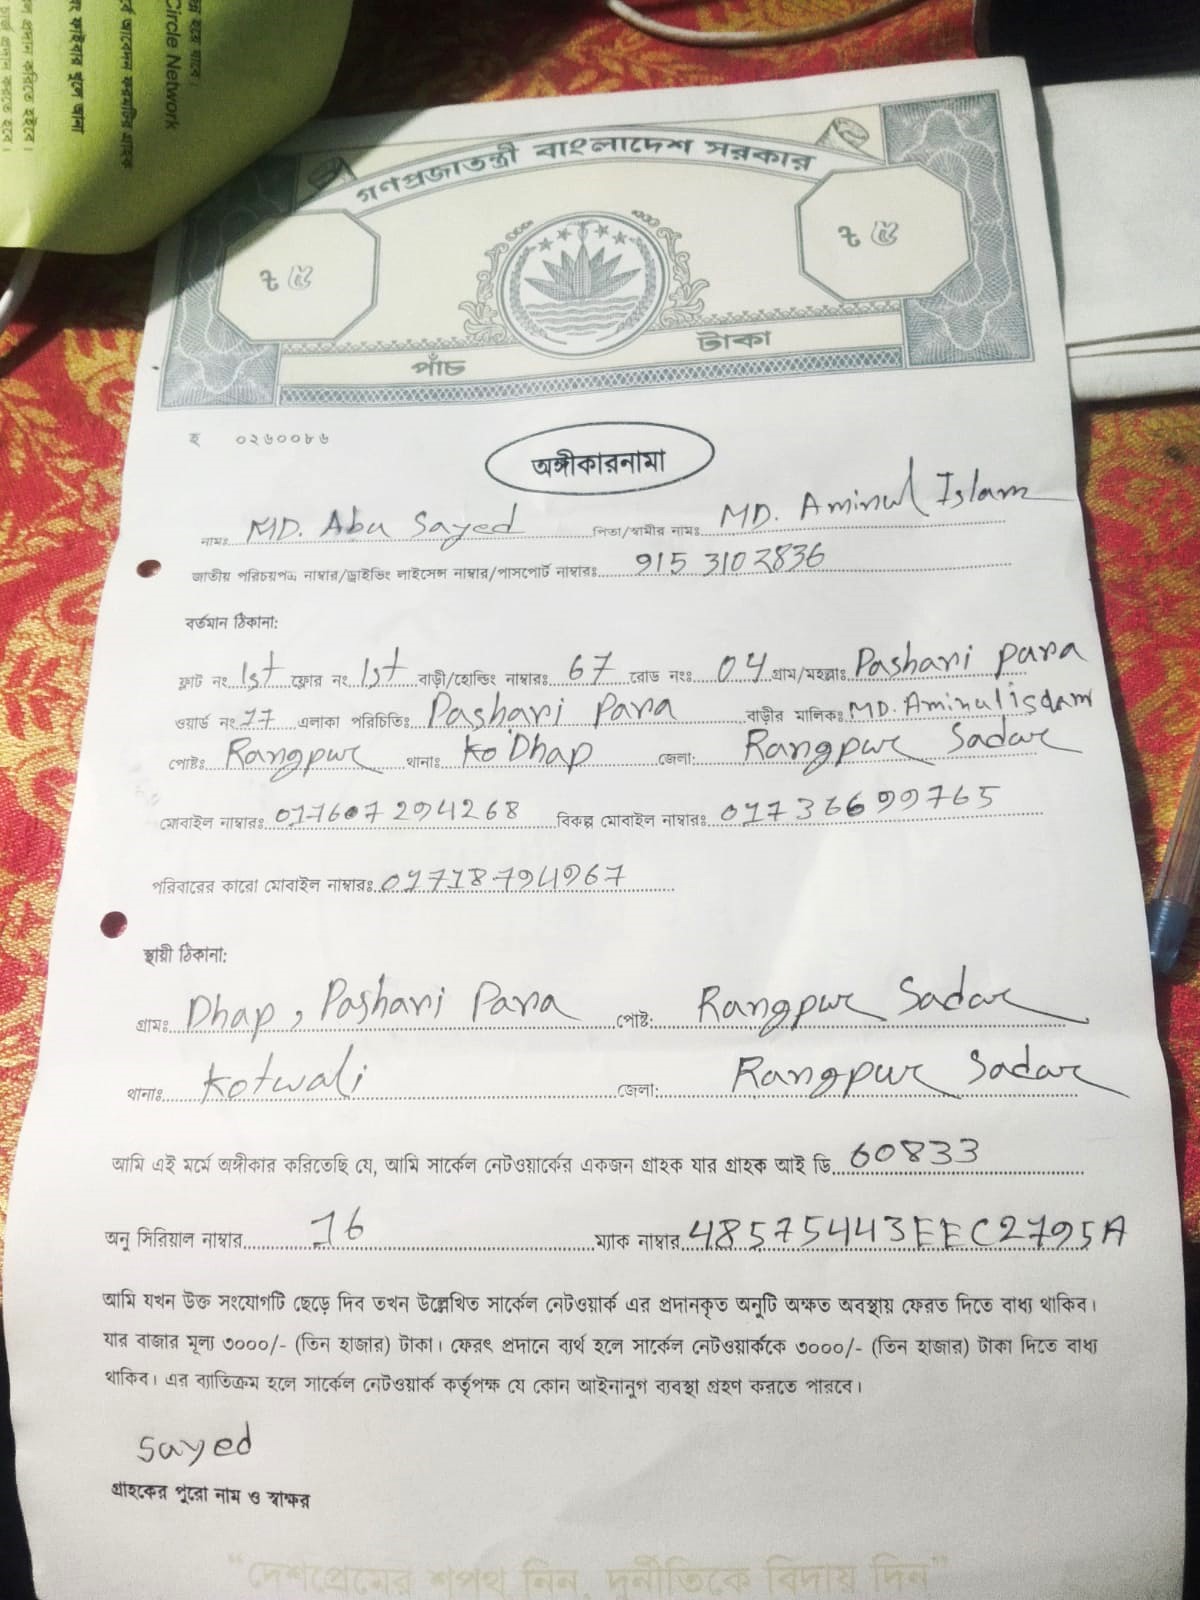 ন্ন হয়ে যাবে।
Circle Network
র্বে আবেদন ফরমটির গ্রাহক
ফাইবার খুলে আনা
প্রদান করিতে হইবে।
চার্জ প্রদান করতে হবে।
গণপ্রজাতন্ত্রী বাংলাদেশ সরকার
৳ ৫
৳ ৫
পাঁচ
টাকা
হ ০২৬০০৮৬
অঙ্গীকারনামা
নামঃ MD. Abu Sayed পিতা/স্বামীর নামঃ MD. Aminul Islam
জাতীয় পরিচয়পত্র নাম্বার/ড্রাইভিং লাইসেন্স নাম্বার/পাসপোর্ট নাম্বারঃ 915 310 2836
বর্তমান ঠিকানা:
ফ্লাট নং 1st ফ্লোর নং 1st বাড়ী/হোল্ডিং নাম্বারঃ 67 রোড নংঃ 04 গ্রাম/মহল্লাঃ Pashari para
ওয়ার্ড নং 17 এলাকা পরিচিতিঃ Pashari Para বাড়ীর মালিকঃ MD. Aminul isdam
পোষ্টঃ Rangpur থানাঃ Ko Dhap জেলা: Rangpur Sadar
মোবাইল নাম্বারঃ 017607294268 বিকল্প মোবাইল নাম্বারঃ 01736699765
পরিবারের কারো মোবাইল নাম্বারঃ 01718794967
স্থায়ী ঠিকানা:
গ্রামঃ Dhap, Pashari Para পোষ্ট: Rangpur Sadar
থানাঃ Kotwali জেলা: Rangpur Sadar
আমি এই মর্মে অঙ্গীকার করিতেছি যে, আমি সার্কেল নেটওয়ার্কের একজন গ্রাহক যার গ্রাহক আই ডি 60833
অনু সিরিয়াল নাম্বার 16 ম্যাক নাম্বার 48575443EEC2795A
আমি যখন উক্ত সংযোগটি ছেড়ে দিব তখন উল্লেখিত সার্কেল নেটওয়ার্ক এর প্রদানকৃত অনুটি অক্ষত অবস্থায় ফেরত দিতে বাধ্য থাকিব।
যার বাজার মূল্য ৩০০০/- (তিন হাজার) টাকা। ফেরৎ প্রদানে ব্যর্থ হলে সার্কেল নেটওয়ার্ককে ৩০০০/- (তিন হাজার) টাকা দিতে বাধ্য
থাকিব। এর ব্যতিক্রম হলে সার্কেল নেটওয়ার্ক কর্তৃপক্ষ যে কোন আইনানুগ ব্যবস্থা গ্রহণ করতে পারবে।
sayed
গ্রাহকের পুরো নাম ও স্বাক্ষর
“দেশপ্রেমের শপথ নিন, দুর্নীতিকে বিদায় দিন”